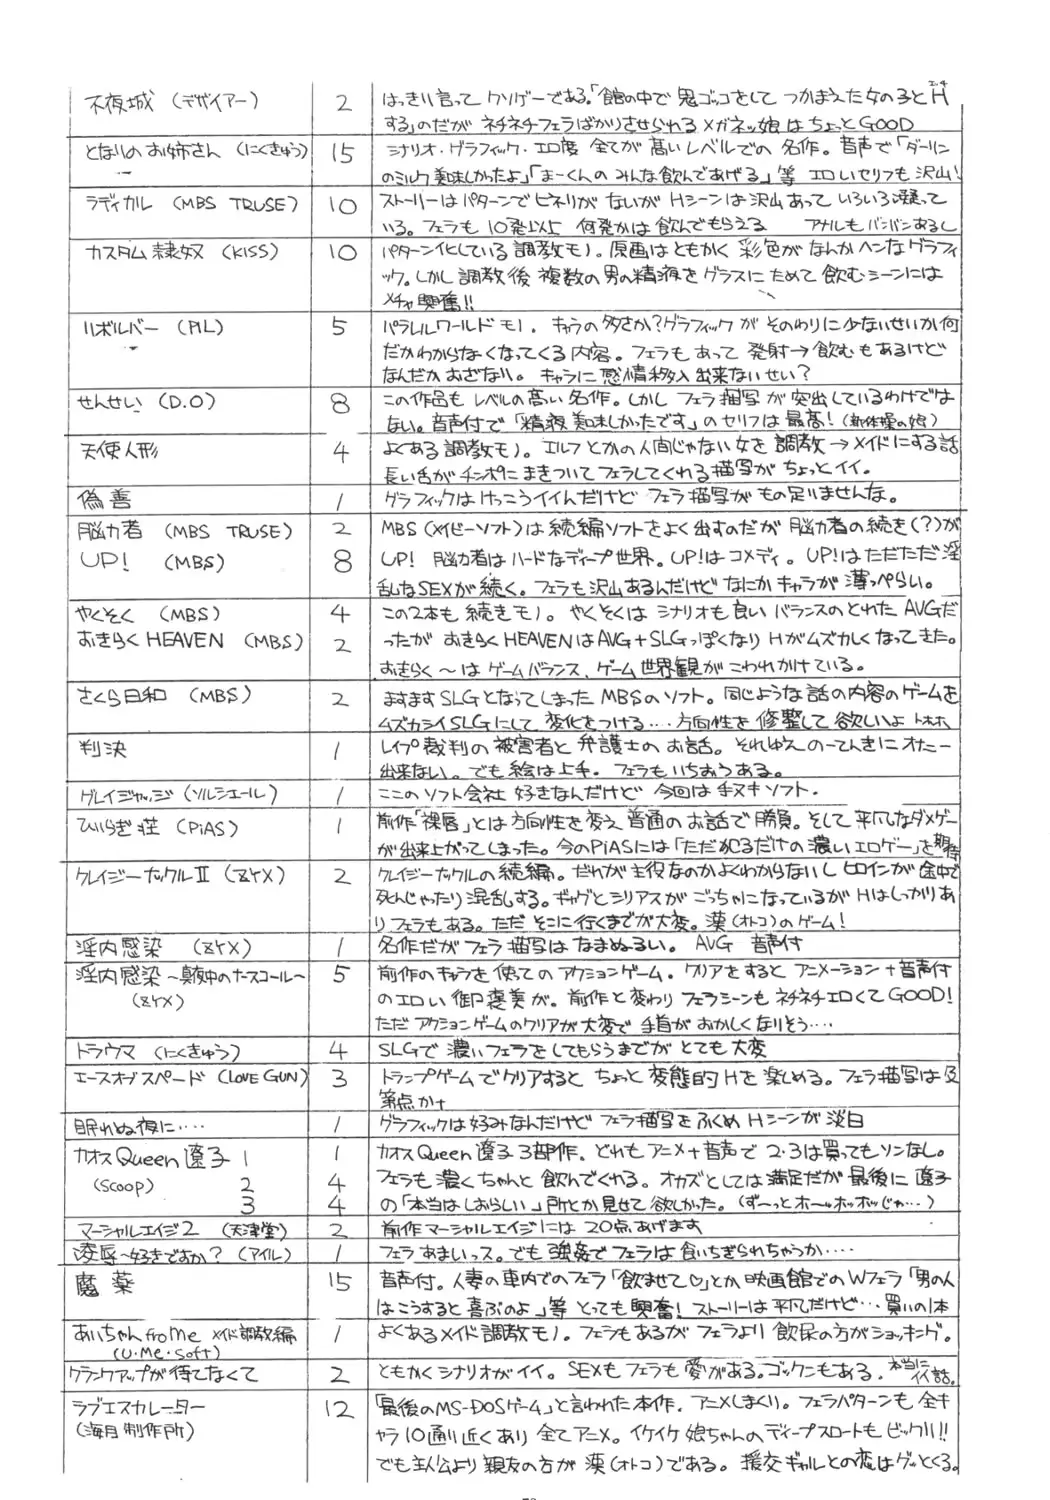 不夜城 (デザイアー) 2 はっきり言ってクソゲーである。「館の中で鬼ゴッコをしてつかまえた女の子とHエッチ
する」のだがネチネチフェラばかりさせられるメガネッ娘はちょっとGOOD
となりのお姉さん (にくきゅう) 15 シナリオ・グラフィック・エロ度 全てが高いレベルでの名作。音声で「ダーリン
のミルク美味しかったよ」「まーくんのみんな飲んであげる」等 エロいセリフも沢山!
ラディカル (MBS TRUSE) 10 ストーリーはパターンでヒネリがないがHシーンは沢山あっていろいろ凝って
いる。フェラも10発以上 何発かは飲んでもらえる アナルもバンバンあるし
カスタム隷奴 (KISS) 10 パターン化している調教モノ。原画はともかく彩色がなんかヘンなグラフィ
ック。しかし調教後 複数の男の精液をグラスにためて飲むシーンには
メチャ興奮!!
リボルバー (PIL) 5 パラレルワールドモノ。キャラの多さか?グラフィックがそのわりに少ないせいか何
だかわからなくなってくる内容。フェラもあって発射→飲むもあるけど
なんだかおざなり。キャラに感情移入出来ないせい?
せんせい (D.O) 8 この作品もレベルの高い名作。しかしフェラ描写が突出しているわけでは
ない。音声付で「精液美味しかったです」のセリフは最高!(新体操の娘)
天使人形 4 よくある調教モノ。エルフとかの人間じゃない女を調教→メイドにする話
長い舌がチンポにまきついてフェラしてくれる描写がちょっとイイ。
偽善 1 グラフィックはけっこうイイんだけどフェラ描写がもの足りませんな。
脳力者 (MBS TRUSE) 2 MBS(メイビーソフト)は続編ソフトをよく出すのだが脳力者の続き(?)が
UP! (MBS) 8 UP! 脳力者はハードなディープ世界。UP!はコメディ。UP!はただただ淫
乱なSEXが続く。フェラも沢山あるんだけどなにかキャラが薄っぺらい。
やくそく (MBS) 4 この2本も続きモノ。やくそくはシナリオも良いバランスのとれたAVGだ
おきらくHEAVEN (MBS) 2 ったがおきらくHEAVENはAVG+SLGっぽくなりHがムズカしくなってきた。
おきらく〜はゲームバランス、ゲーム世界観がこわれかけている。
さくら日和 (MBS) 2 ますますSLGとなってしまったMBSのソフト。同じような話の内容のゲームを
ムズカシイSLGにして変化をつける…方向性を修整して欲しいよ トホホ
判決 1 レイプ裁判の被害者と弁護士のお話。それゆえのーてんきにオナニー
出来ない。でも絵は上手。フェラもいちおうある。
グレイジャッジ (ソルシエール) 1 ここのソフト会社 好きなんだけど今回は手ヌキソフト。
ひいらぎ荘 (PiAS) 1 前作「裸唇」とは方向性を変え普通のお話で勝負。そして平凡なダメゲー
が出来上がってしまった。今のPiASには「ただ犯るだけの濃いエロゲー」を期待
クレイジーナックルⅡ (ZYX) 2 クレイジーナックルの続編。だれが主役なのかよくわからないしヒロインが途中で
死んじゃったり混乱する。ギャグとシリアスがごっちゃになっているがHはしっかりあ
りフェラもある。ただそこに行くまでが大変。漢(オトコ)のゲーム!
淫内感染 (ZYX) 1 名作だがフェラ描写はなまぬるい。AVG 音声付
淫内感染〜真夜中のナースコール〜 5 前作のキャラを使ってのアクションゲーム。クリアをするとアニメーション+音声付
(ZYX) のエロい御褒美が。前作と変わりフェラシーンもネチネチエロくてGOOD!
ただアクションゲームのクリアが大変で手首がおかしくなりそう…
トラウマ (にくきゅう) 4 SLGで濃いフェラをしてもらうまでがとても大変
エースオブスペード (LOVE GUN) 3 トランプゲームでクリアするとちょっと変態的Hを楽しめる。フェラ描写は及
第点かナ
眠れぬ夜に… 1 グラフィックは好みなんだけどフェラ描写をふくめHシーンが淡白
カオスQueen遼子 1 1 カオスQueen遼子3部作。どれもアニメ+音声で2・3は買ってもソンなし。
(SCOOP) 2 4 フェラも濃くちゃんと飲んでくれる。オカズとしては満足だが最後に遼子
3 4 の「本当はしおらしい」所とか見せて欲しかった。(ず〜っとホーッホッホッじゃ…)
マーシャルエイジ2 (天津堂) 2 前作マーシャルエイジには20点あげます
凌辱〜好きですか? (アイル) 1 フェラあまいっス。でも強姦でフェラは食いちぎられちゃうか…
魔薬 15 音声付。人妻の車内でのフェラ「飲ませて♡」とか映画館でのWフェラ「男の人
はこうすると喜ぶのよ」等とっても興奮!ストーリーは平凡だけど…買いの1本
あいちゃんfroMe メイド調教編 1 よくあるメイド調教モノ。フェラもあるがフェラより飲尿の方がショッキング。
(U・Me・Soft)
クランクアップが待てなくて 2 ともかくシナリオがイイ。SEXもフェラも愛がある。ゴックンもある。本当にイイ話。
ラブエスカレーター 12 「最後のMS-DOSゲーム」と言われた本作。アニメしまくり。フェラパターンも全キ
(海月制作所) ャラ10通り近くあり全てアニメ。イケイケ娘ちゃんのディープスロートもビックリ!!
でも主人公より親友の方が漢(オトコ)である。援交ギャルとの恋はグッとくる。